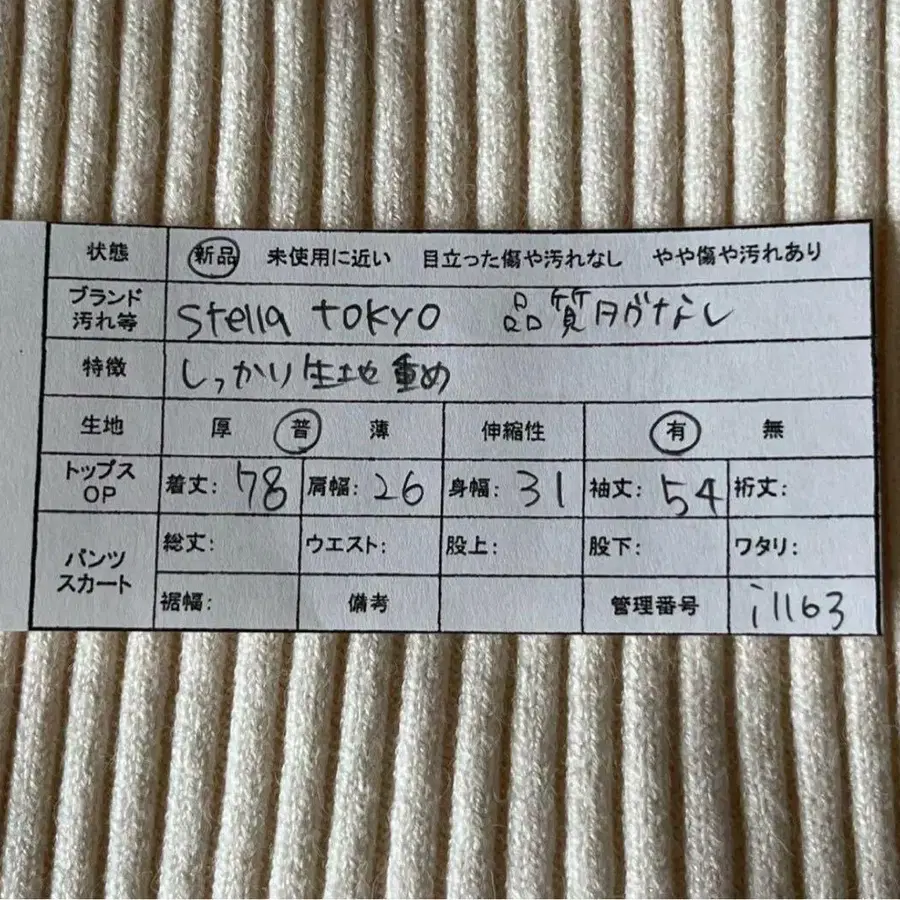 状態 新品 未使用に近い 目立った傷や汚れなし やや傷や汚れあり
ブランド
汚れ等 stella tokyo 品質タグなし
特徴 しっかり生地重め
生地 厚 普 薄 伸縮性 有 無
トップス
OP 着丈: 78 肩幅: 26 身幅: 31 袖丈: 54 裄丈:
パンツ
スカート 総丈: ウエスト: 股上: 股下: ワタリ:
裾幅: 備考 管理番号 i1163